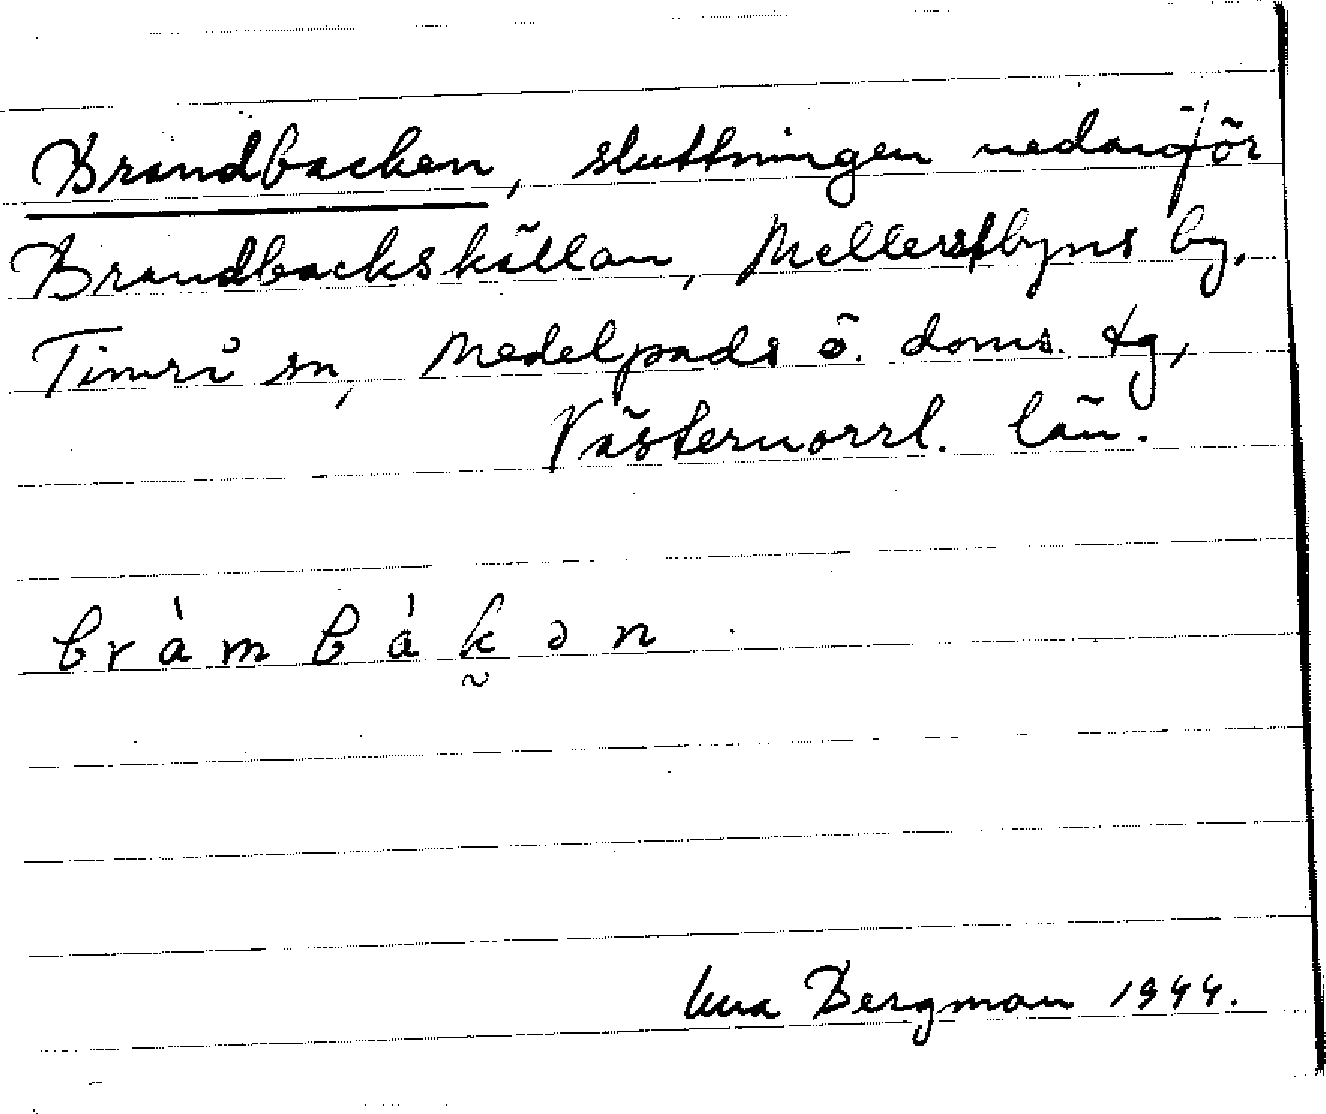 Brandbacken, sluttningen nedanför
Brandbackskällan, Mellerstbyns by,
Timrå sn, Medelpads ö. doms. tg,
Västernorrl. län.
bràmbákən
Bergman 1944.